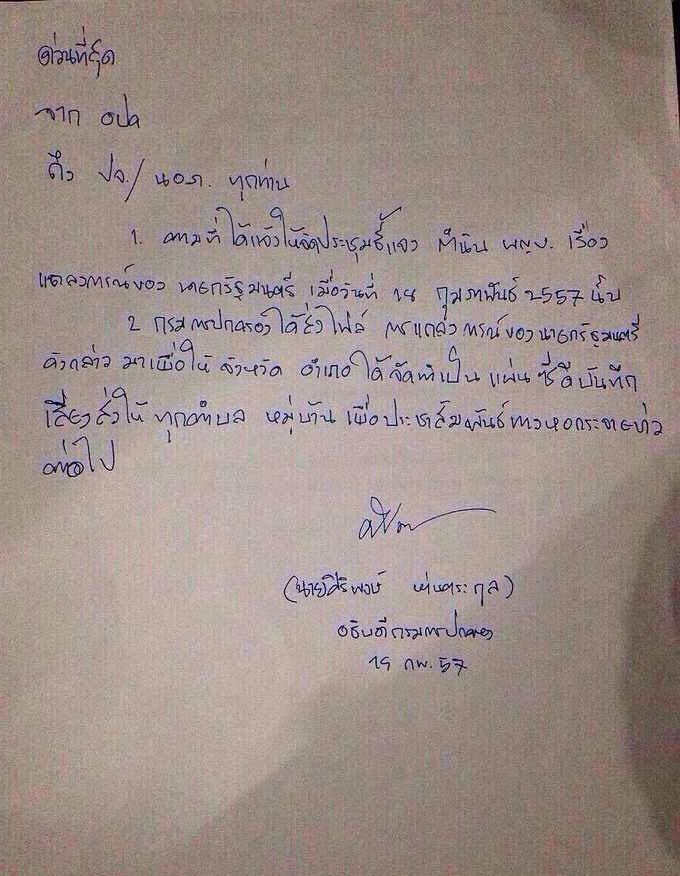 ด่วนที่สุด
จาก อปค
ถึง ปจ./นอภ. ทุกท่าน
1. ตามที่ได้แจ้งให้จัดประชุมชี้แจง กำนัน ผญบ. เรื่อง
แถลงการณ์ของ นายกรัฐมนตรี เมื่อวันที่ 18 กุมภาพันธ์ 2557 นั้น
2 กรมการปกครองได้ส่งไฟล์ การแถลงการณ์ของนายกรัฐมนตรี
ดังกล่าว มาเพื่อให้ จังหวัด อำเภอ ได้จัดทำเป็น แผ่น ซีดีบันทึก
เสียงส่งให้ ทุกตำบล หมู่บ้าน เพื่อประชาสัมพันธ์ทางหอกระจายข่าว
ต่อไป
(นายศิริพงษ์ ห่านตระกูล)
อธิบดีกรมการปกครอง
19 กพ. 57